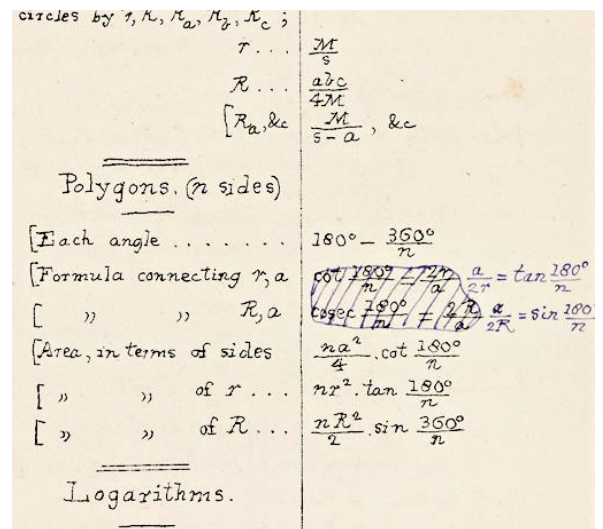 circles by r, R, Ra, Rb, Rc ;
r . . . M/s
R . . . abc/4M
[Ra, &c M/(s - a) , &c
Polygons. (n sides)
[Each angle . . . . . . . 180° - 360°/n
[Formula connecting r, a cot 180°/n = 2r/a a/2r = tan 180°/n
[ " " R, a cosec 180°/n = 2R/a a/2R = sin 180°/n
[Area, in terms of sides na²/4 . cot 180°/n
[ " " of r . . . nr² . tan 180°/n
[ " " of R . . . nR²/2 . sin 360°/n
Logarithms.